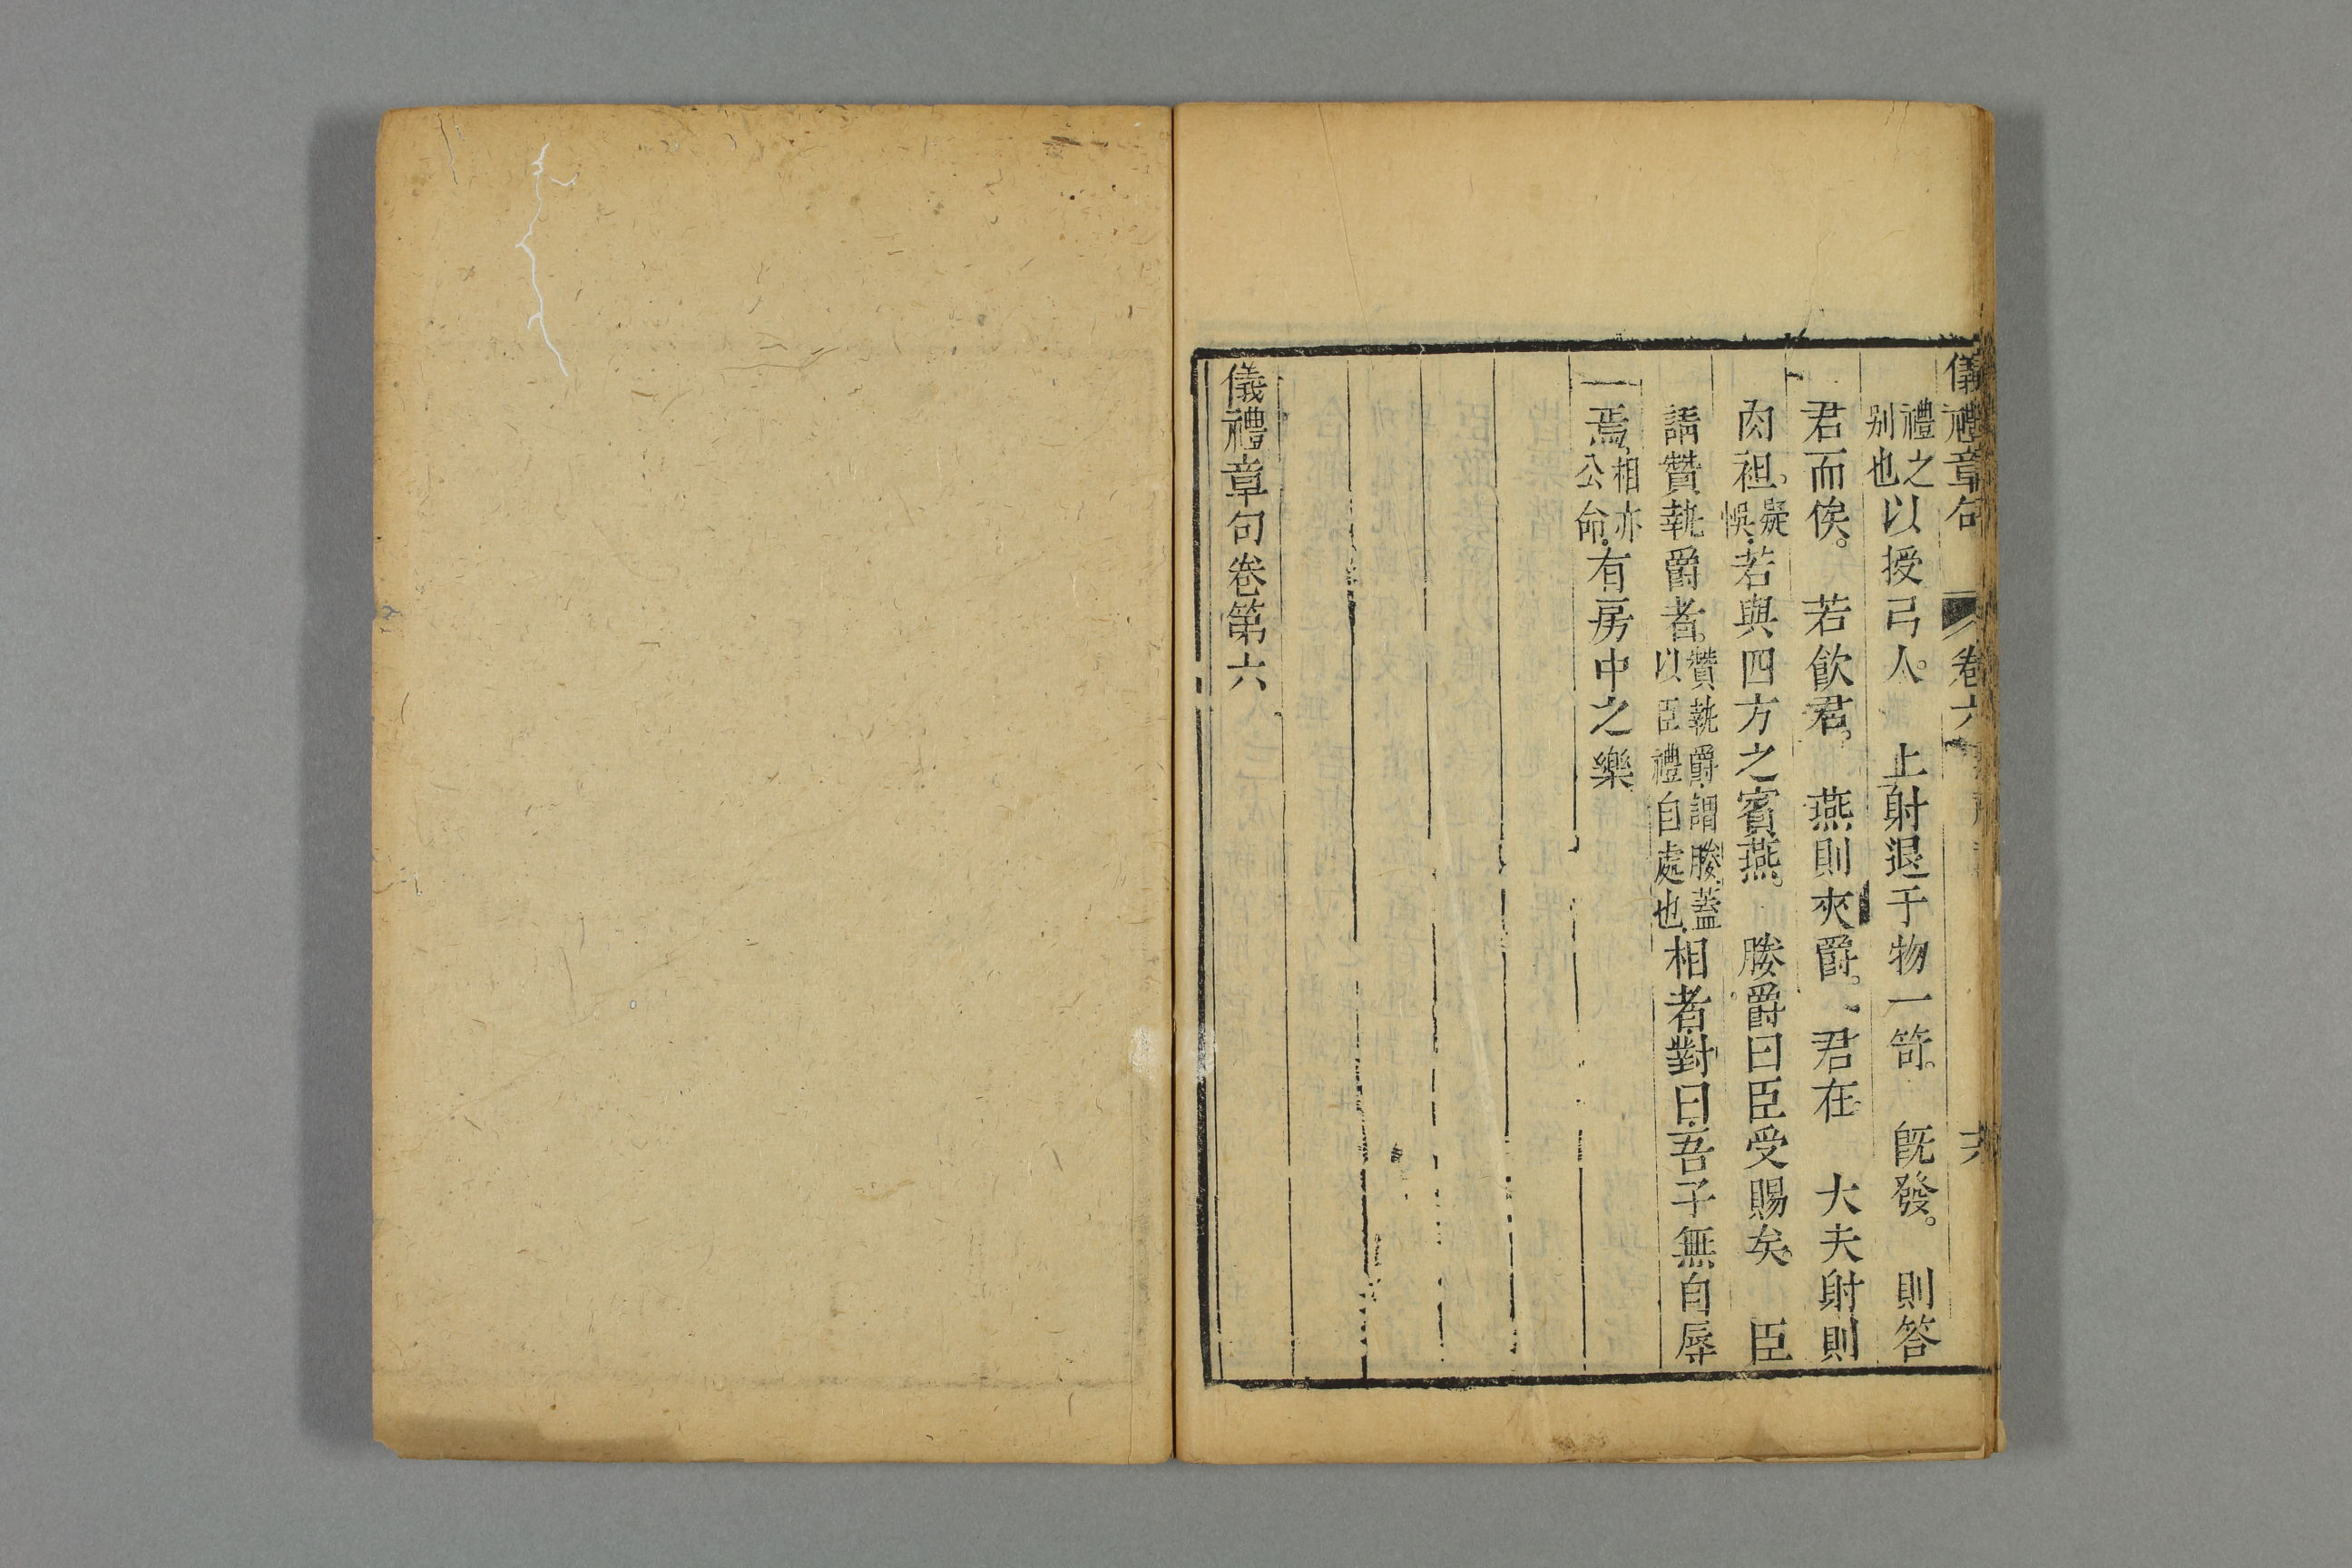 儀禮章句 卷六 六
禮之別也以授弓人。 上射退于物一笴。 旣發。 則答
君而俟。 若飮君。 燕則夾爵。 君在 大夫射則
肉袒。疑悞。若與四方之賓燕。 媵爵曰臣受賜矣。 臣
請贊執爵者。贊執爵。謂媵。蓋以臣禮自處也。相者對曰。吾子無自辱
焉。相亦公命。有房中之樂
儀禮章句卷第六